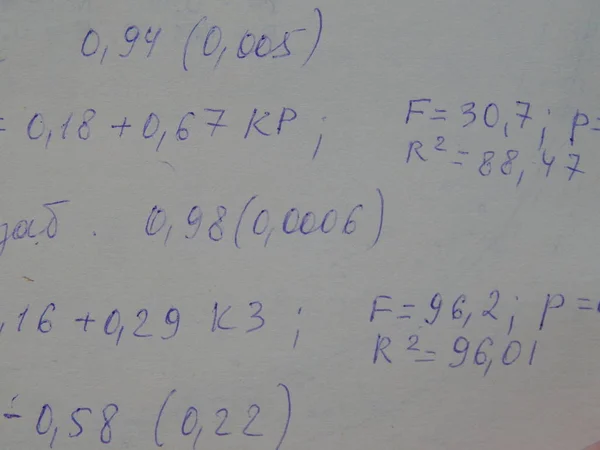 0,94 (0,005)
= 0,18 + 0,67 КР ; F = 30,7 ; p =
R² = 88,47
заб. 0,98 (0,0006)
,16 + 0,29 КЗ ; F = 96,2 ; p =
R² = 96,01
- 0,58 (0,22)